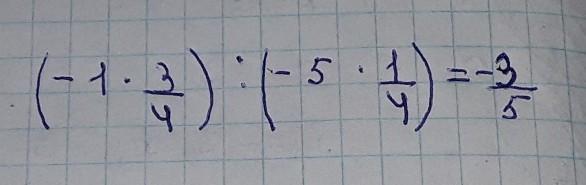 (-1 · 3/4) : (-5 · 1/4) = -3/5